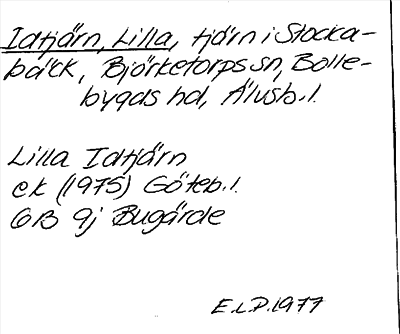 Idtjärn, Lilla, tjärn i Stocka-
bäck, Björketorps sn, Bolle-
bygds hd, Älvsb. l.
Lilla Idtjärn
ek (1975) Göteb. l.
6B 9j Bugärde
E.L.P. 1977